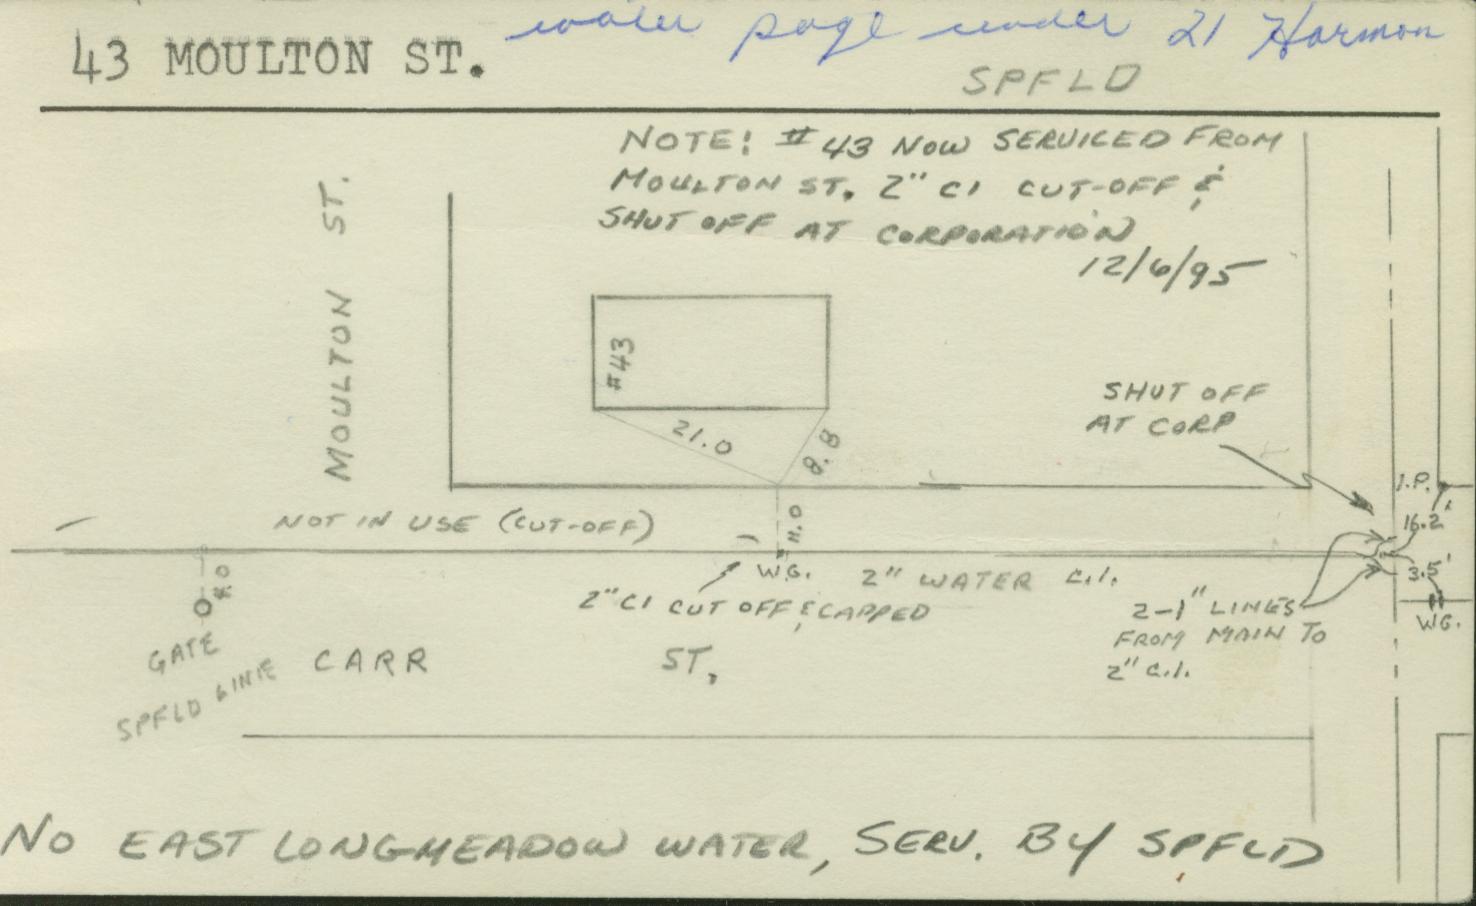 water page under 21 Harmon
43 MOULTON ST.
SPFLD
NOTE: #43 NOW SERVICED FROM
MOULTON ST. 2" CI CUT-OFF &
SHUT OFF AT CORPORATION
12/6/95
MOULTON ST.
#43
21.0
8.8
11.0
SHUT OFF
AT CORP
I.P.
16.2'
3.5'
W.G.
NOT IN USE (CUT-OFF)
W.G.
2" WATER C.I.
2" CI CUT OFF & CAPPED
2-1" LINES
FROM MAIN TO
2" C.I.
GATE
SPFLD LINE
CARR ST.
NO EAST LONGMEADOW WATER, SERV. BY SPFLD